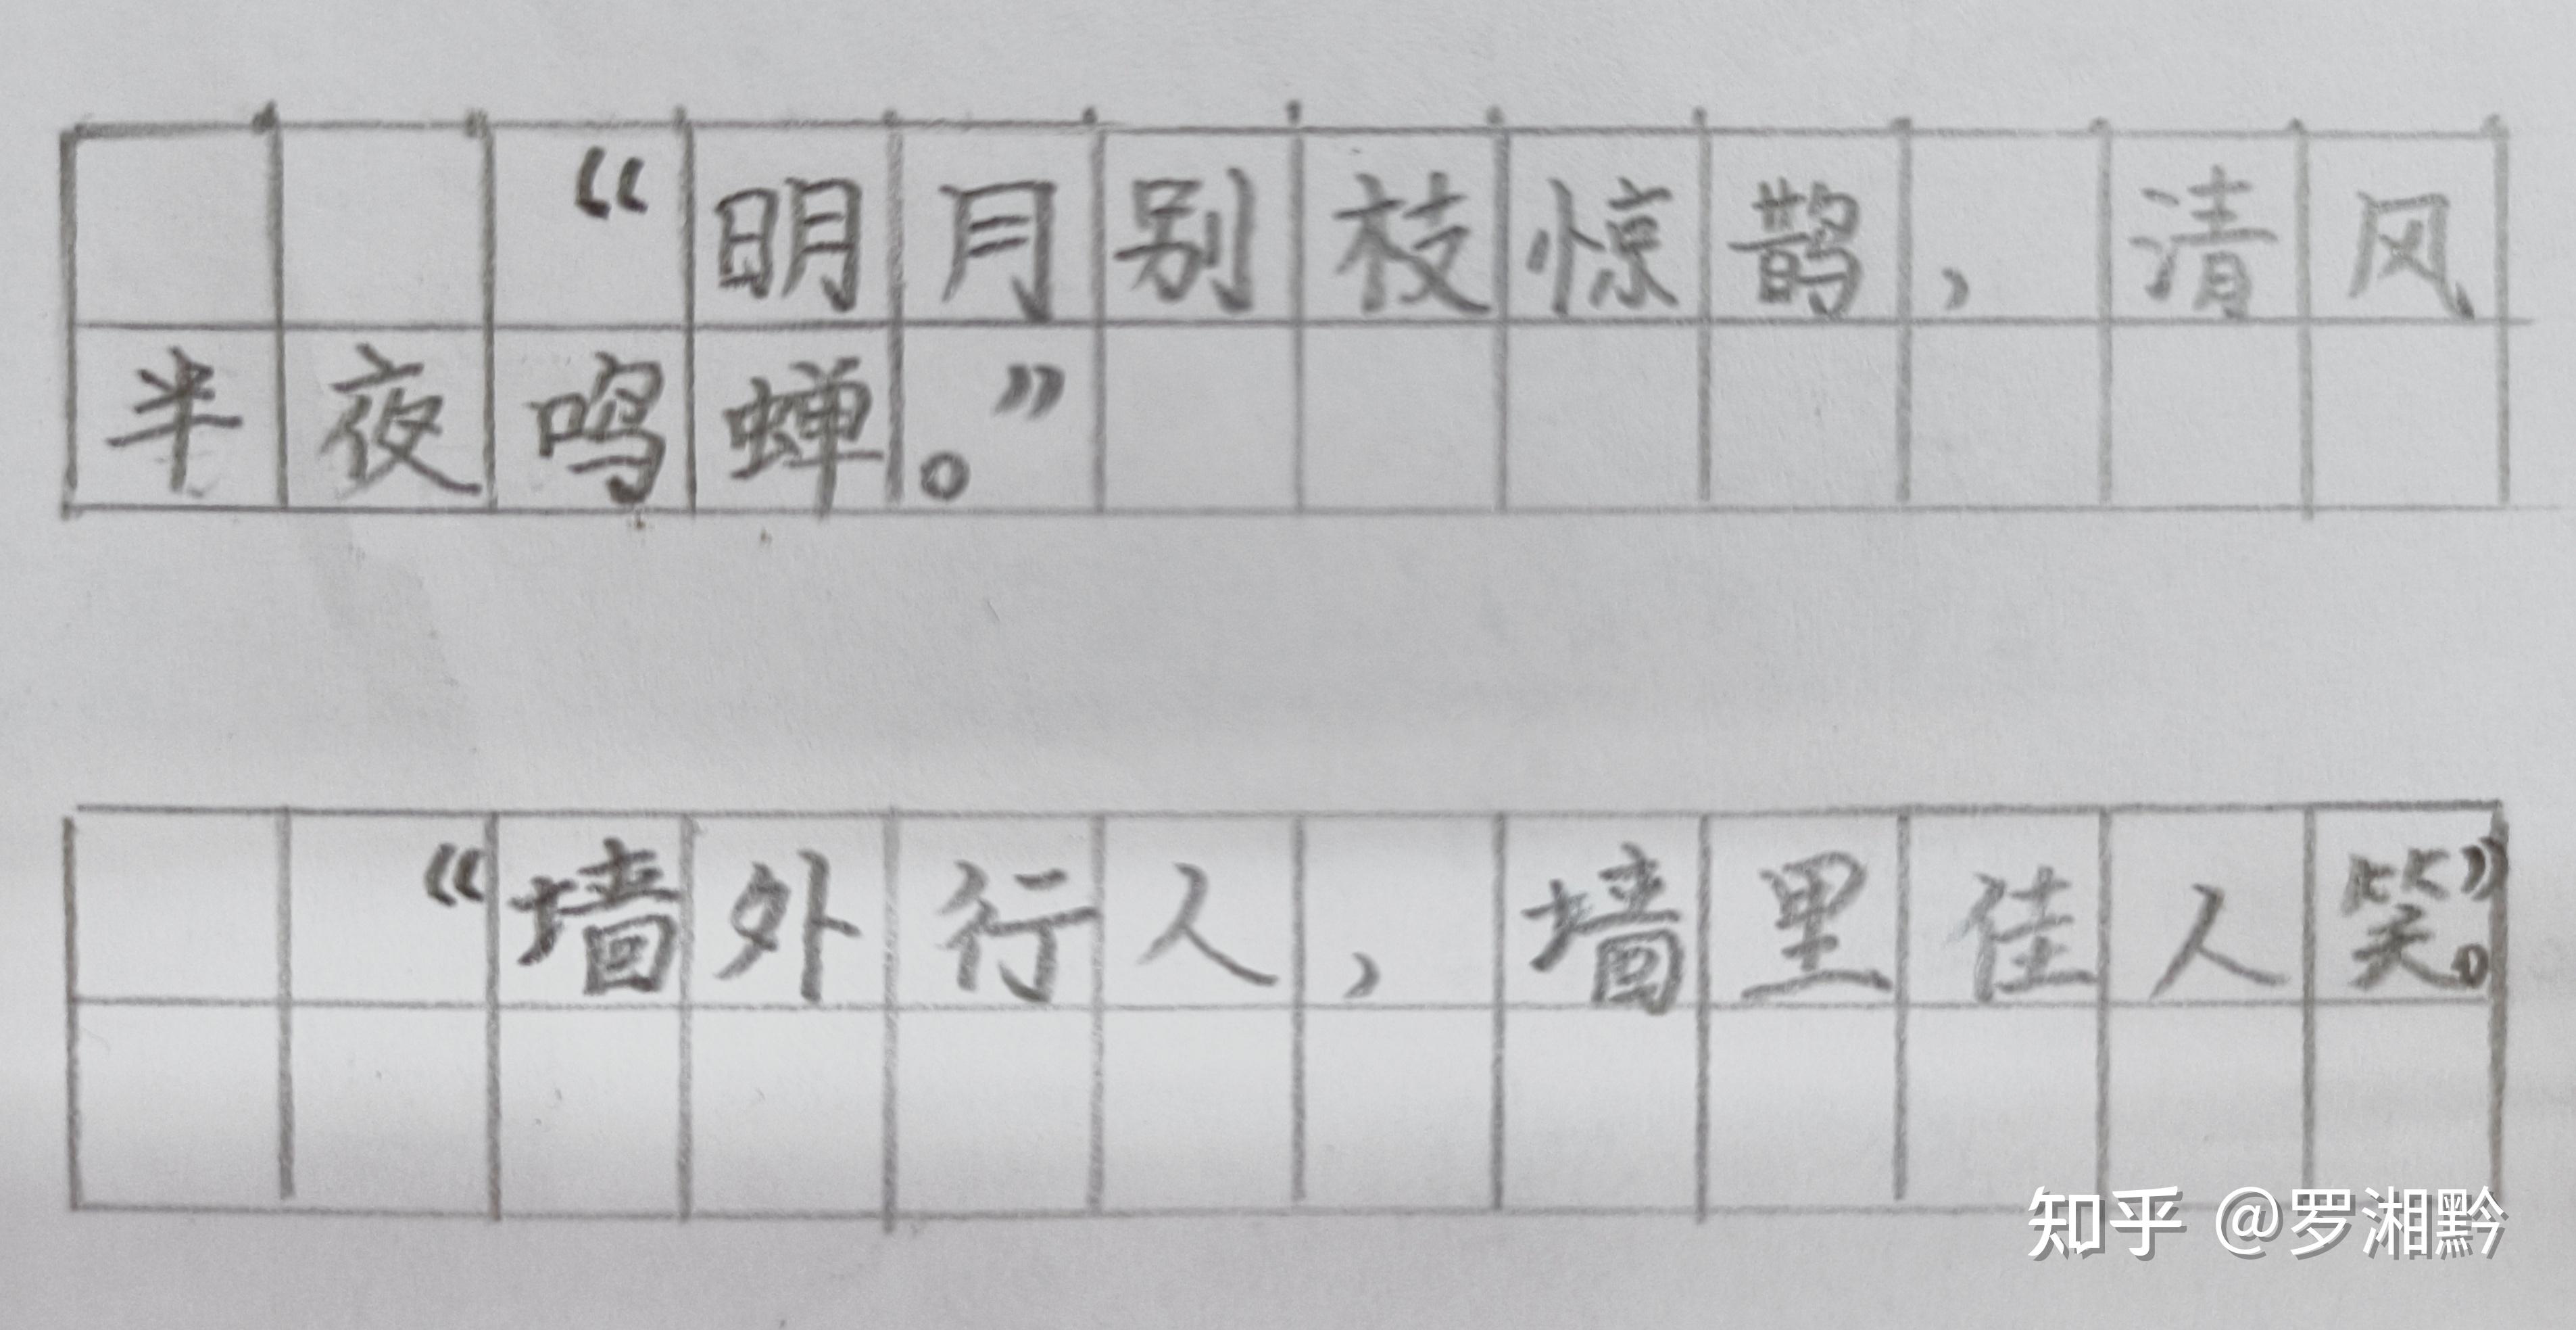 “明月别枝惊鹊，清风
半夜鸣蝉。”
“墙外行人，墙里佳人笑。”
知乎 @罗湘黔